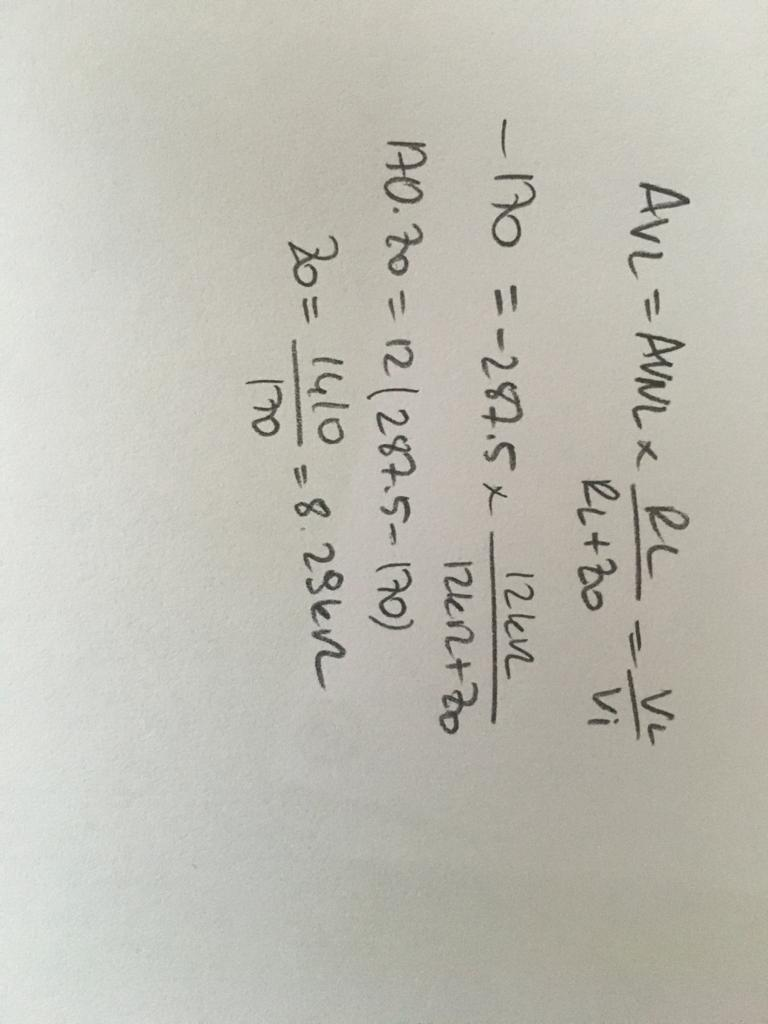 AVL = AVNL x RL / RL + Zo = VL / Vi
-170 = -287.5 x 12kΩ / 12kΩ + Zo
170.Zo = 12(287.5 - 170)
Zo = 1410 / 170 = 8.29kΩ